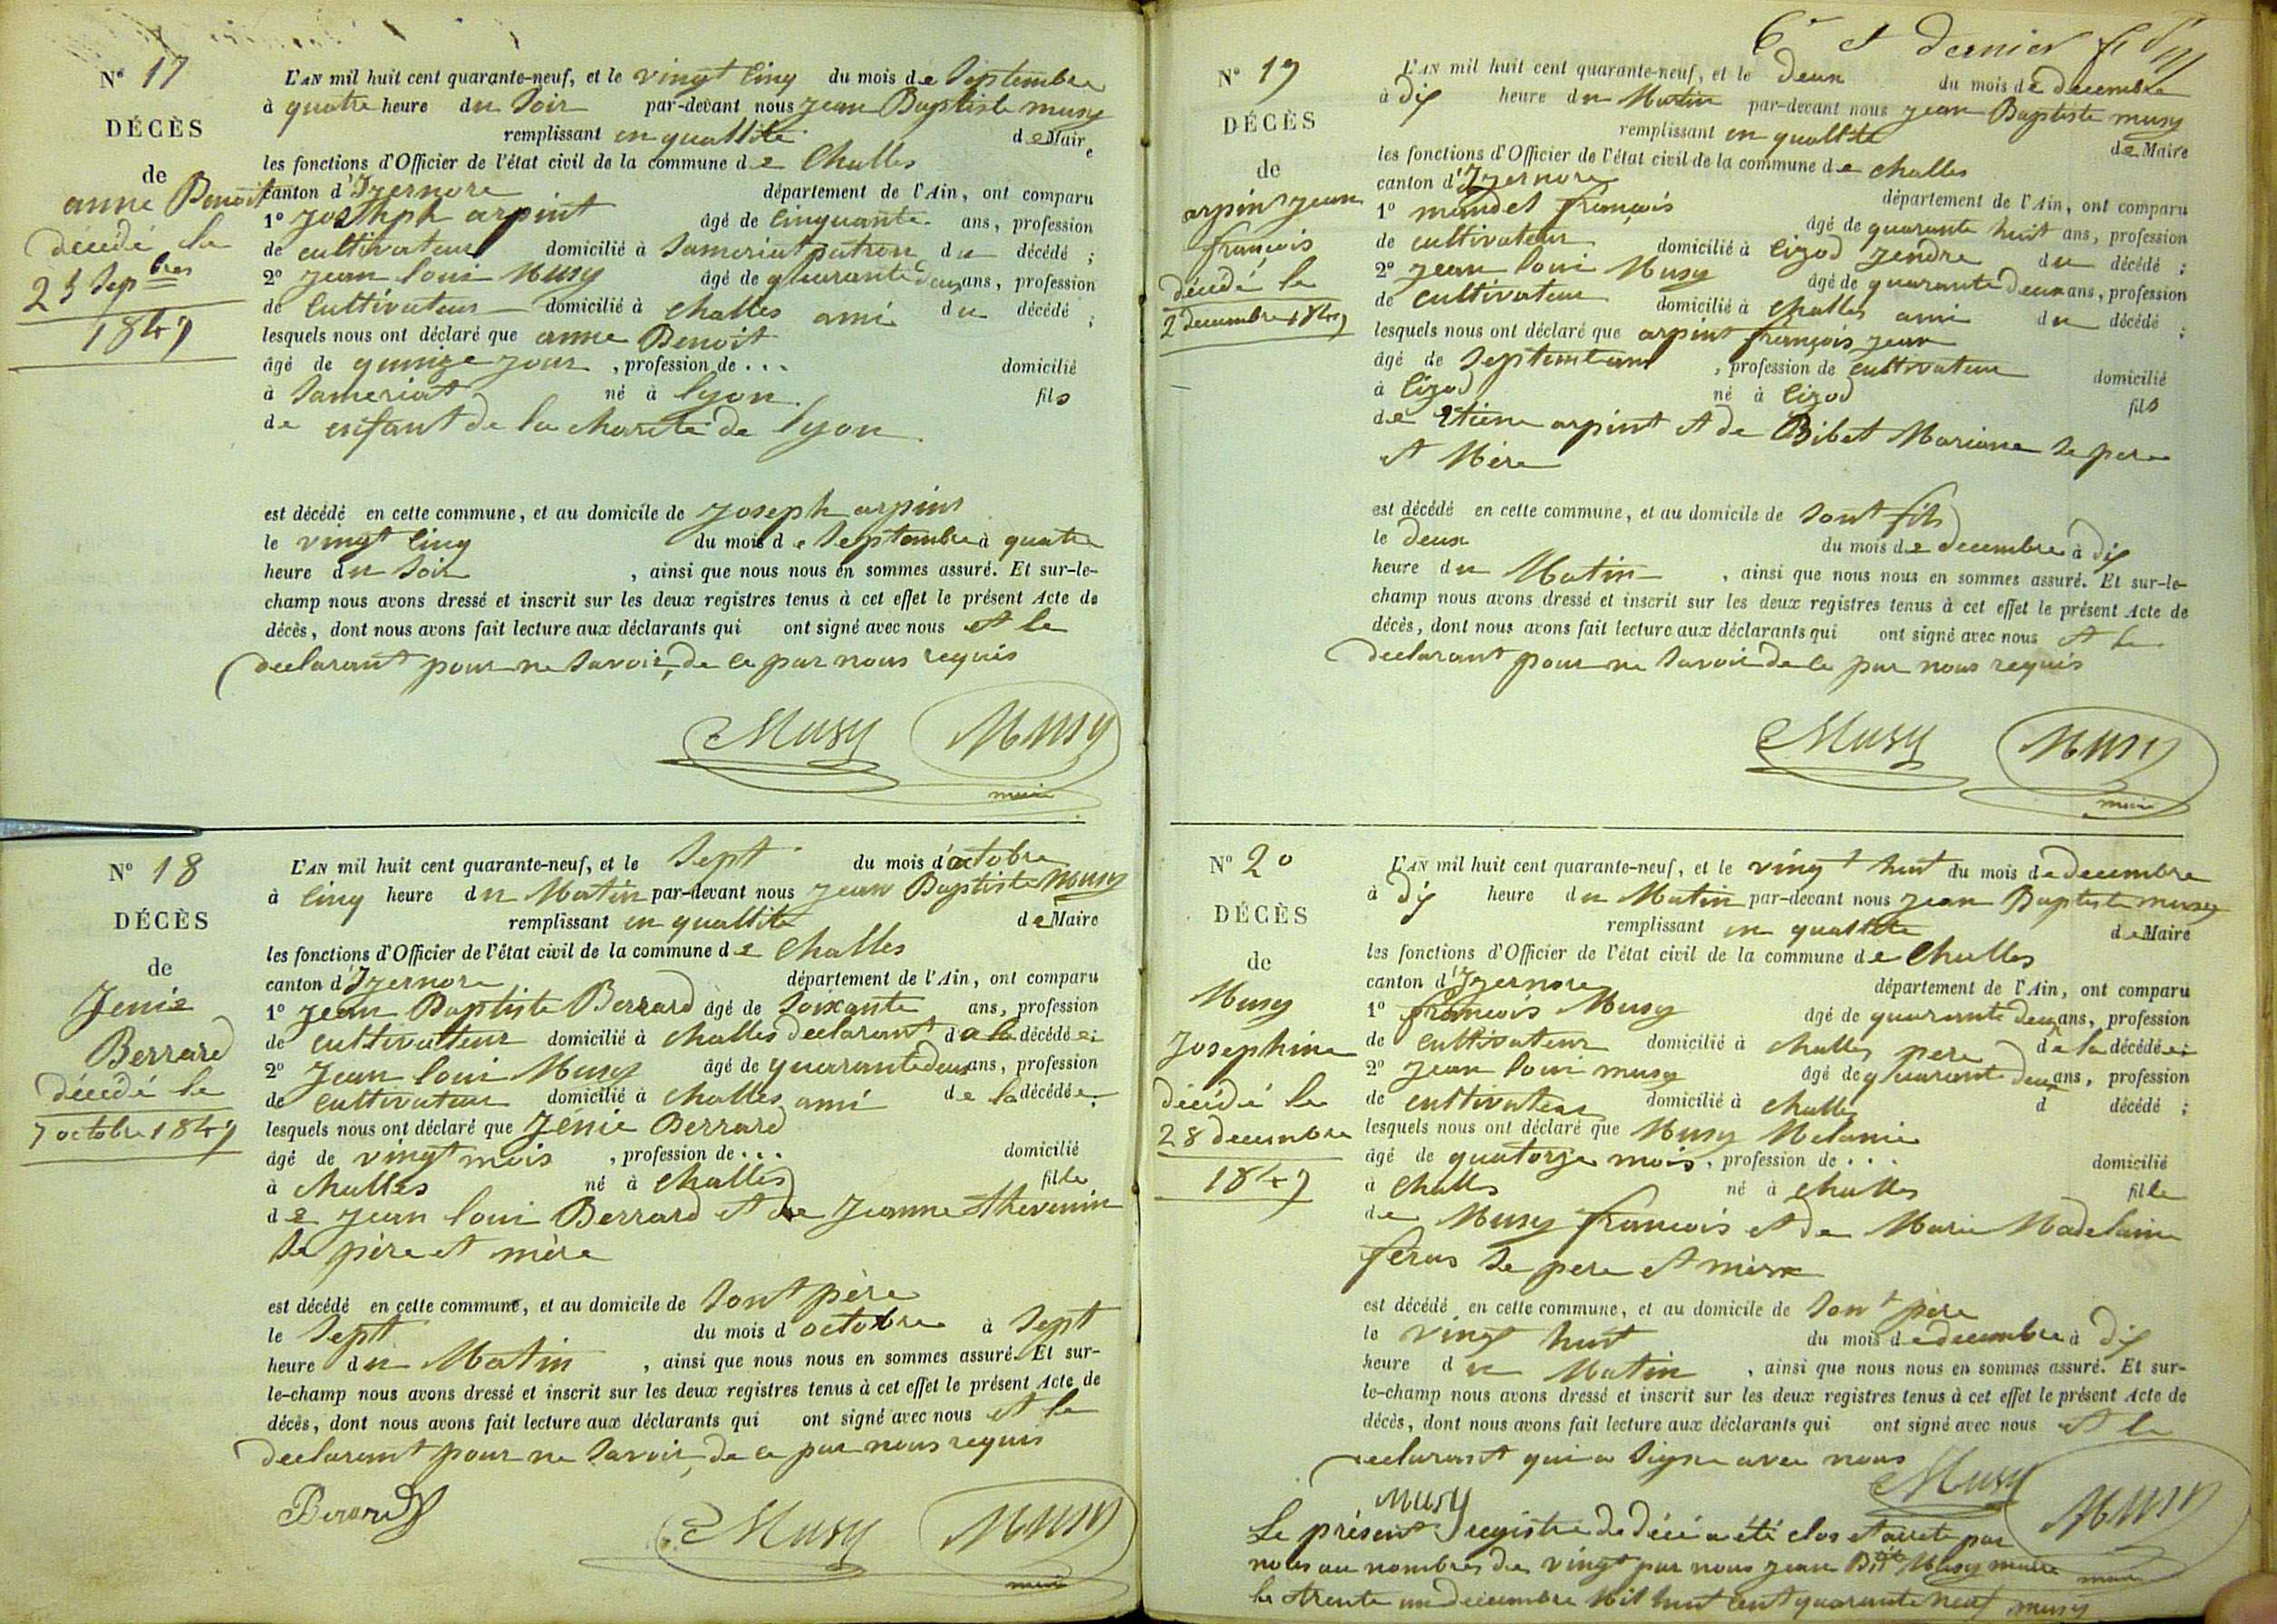 N° 17
DÉCÈS
de
anne Benoit
décédé le
25 Sepbres
1849
L'AN mil huit cent quarante-neuf, et le vingt cinq du mois de Septembre
à quatre heure du Soir par-devant nous jean Baptiste musy
remplissant en quallité de Maire
les fonctions d'Officier de l'état civil de la commune de Challes
canton d'Izernore département de l'Ain, ont comparu
1° joseph arpint âgé de cinquante ans, profession
de cultivateur domicilié à Sameriat patron du décédé ;
2° jean loui Musy âgé de quarante deux ans, profession
de Cultivateur domicilié à challes ami du décédé ;
lesquels nous ont déclaré que anne Benoit
âgé de quinze jour , profession de . . . domicilié
à Sameriat né à lyon fils
de enfant de la charité de lyon
est décédé en cette commune, et au domicile de joseph arpint
le vingt cinq du mois de Septembre à quatre
heure du Soir , ainsi que nous nous en sommes assuré. Et sur-le-
champ nous avons dressé et inscrit sur les deux registres tenus à cet effet le présent Acte de
décès, dont nous avons fait lecture aux déclarants qui ont signé avec nous et le
declarant pour ne Savoir, de ce par nous requis
Musy Musy
maire
N° 18
DÉCÈS
de
Jenie
Berrard
décédé le
7 octobre 1849
L'AN mil huit cent quarante-neuf, et le Sept du mois d'octobre
à cinq heure du Matin par-devant nous jean Baptiste Musy
remplissant en quallité de Maire
les fonctions d'Officier de l'état civil de la commune de Challes
canton d'Izernore département de l'Ain, ont comparu
1° jean Baptiste Berrard âgé de Soixante ans, profession
de cultivatteur domicilié à challes declarant de la décédée ;
2° Jean loui Musy âgé de quarante deux ans, profession
de cultivateur domicilié à challes ami de la décédée ;
lesquels nous ont déclaré que Jénie Berrard
âgé de vingt mois , profession de . . . domicilié
à challes né à challes fille
de jean loui Berrard et de Jeanne thevenin
Se père et mère
est décédé en cette commune, et au domicile de Sont père
le Sept du mois d octobre à Sept
heure du Matin , ainsi que nous nous en sommes assuré. Et sur-
le-champ nous avons dressé et inscrit sur les deux registres tenus à cet effet le présent Acte de
décès, dont nous avons fait lecture aux déclarants qui ont signé avec nous et le
declarant pour ne Savoir, de ce par nous requis
Berard Musy Musy
maire
6e et dernier f
N° 19
DÉCÈS
de
arpint jean
françois
décédé le
2 decembre 1849
L'AN mil huit cent quarante-neuf, et le deux du mois de decembre
à dix heure du Matin par-devant nous jean Baptiste musy
remplissant en quallité de Maire
les fonctions d'Officier de l'état civil de la commune de challes
canton d'Izernore département de l'Ain, ont comparu
1° mandet françois âgé de quarante huit ans, profession
de cultivateur domicilié à Cizod jendre du décédé ;
2° jean loui Musy âgé de quarante deux ans, profession
de cultivateur domicilié à challes ami du décédé ;
lesquels nous ont déclaré que arpint françois jean
âgé de Septemt ans , profession de cultivateur domicilié
à Cizod né à Cizod fils
de etiene arpint et de Bibet Mariane Se pere
et Mère
est décédé en cette commune, et au domicile de Sont fils
le deux du mois de decembre à dix
heure du Matin , ainsi que nous nous en sommes assuré. Et sur-le-
champ nous avons dressé et inscrit sur les deux registres tenus à cet effet le présent Acte de
décès, dont nous avons fait lecture aux déclarants qui ont signé avec nous et le
declarant pour ne Savoir de ce par nous requis
Musy Musy
maire
N° 20
DÉCÈS
de
Musy
Josephine
décédé le
28 decembre
1849
L'AN mil huit cent quarante-neuf, et le vingt huit du mois de decembre
à dix heure du Matin par-devant nous jean Baptiste musy
remplissant en quallité de Maire
les fonctions d'Officier de l'état civil de la commune de Challes
canton d'Izernore département de l'Ain, ont comparu
1° françois Musy âgé de quarante deux ans, profession
de cultivateur domicilié à challes pere de la décédée ;
2° jean loui musy âgé de quarante deux ans, profession
de cultivateur domicilié à challes d décédé ;
lesquels nous ont déclaré que Musy Melanie
âgé de quatorze mois , profession de . . . domicilié
à Challs né à challes fille
de Musy francois et de Marie Madelaine
feras Se pere et mère
est décédé en cette commune, et au domicile de Sont père
le vingt huit du mois de decembre à dix
heure du Matin , ainsi que nous nous en sommes assuré. Et sur-
le-champ nous avons dressé et inscrit sur les deux registres tenus à cet effet le présent Acte de
décès, dont nous avons fait lecture aux déclarants qui ont signé avec nous et le
declarant qui a Signe avec nous
Musy Musy Musy
Le présent registre de décé a été clos et arreté par
nous au nombres de vingt par nous jean Bte Musy maire
le trente un decembre Mil huit cent quarante neuf musy
maire